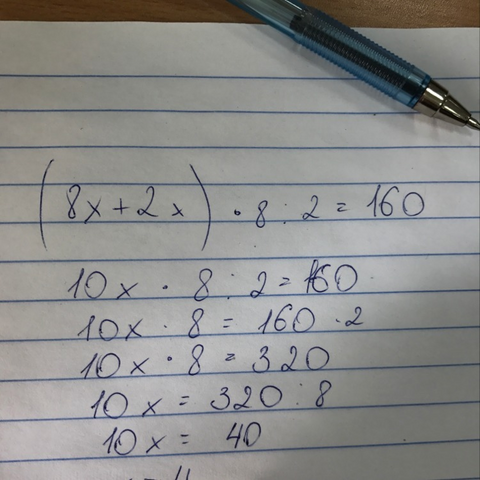 (8x+2x) · 8 : 2 = 160
10x · 8 : 2 = 160
10x · 8 = 160 · 2
10x · 8 = 320
10x = 320 : 8
10x = 40